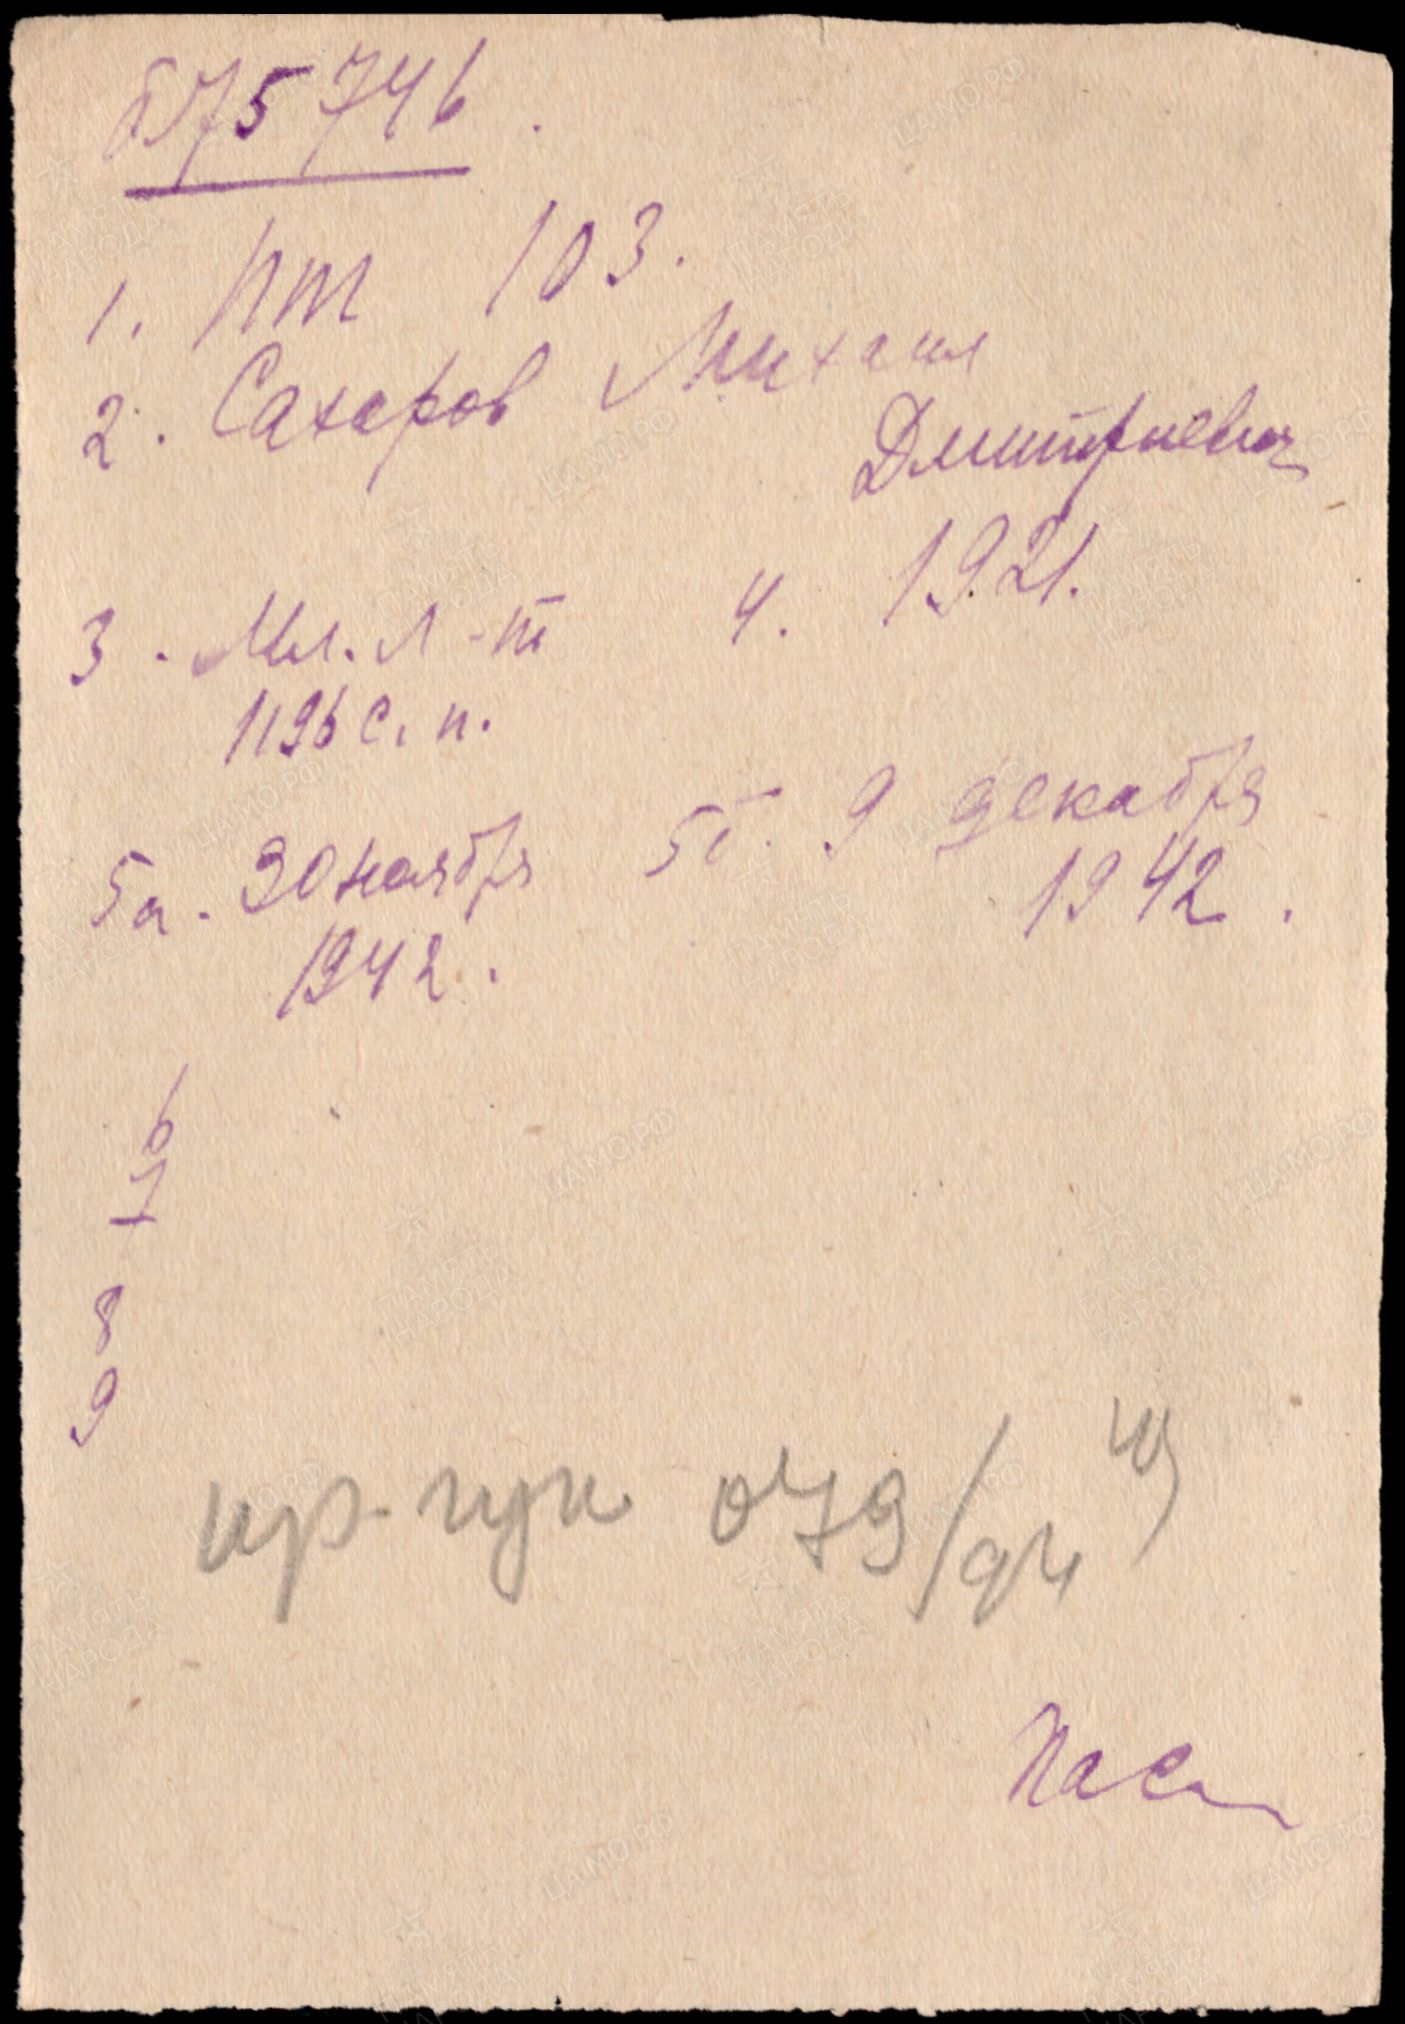 675746.
1. ПТ 103.
2. Сахаров Михаил
Дмитриевич
3. Мл. Л-т 4. 1921.
1196 с. п.
5а. 30 ноября 5б. 9 декабря
1942. 1942.
6
7
8
9
пр. гук 079